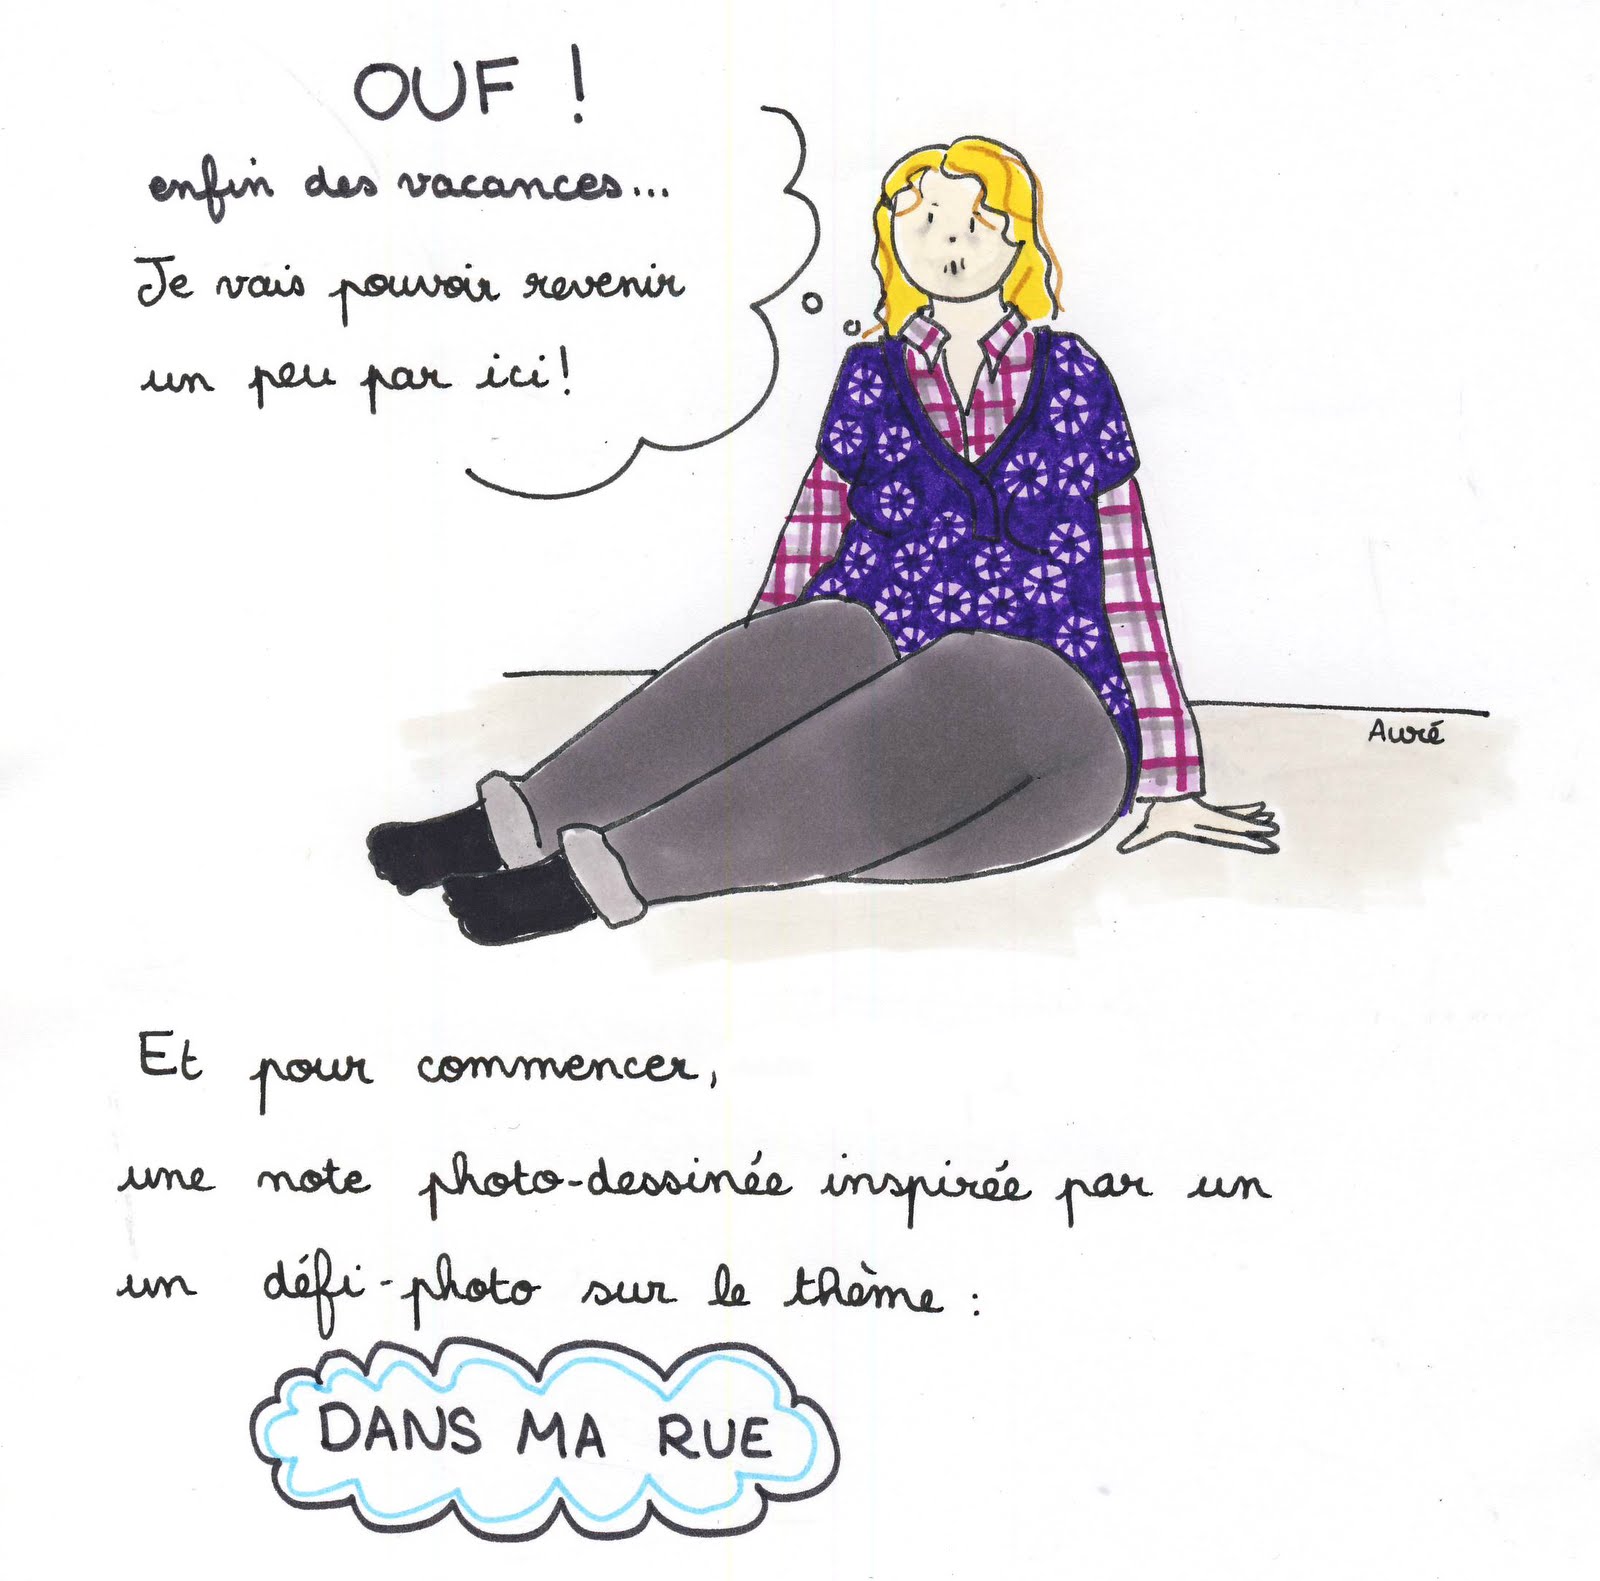 OUF !
enfin des vacances...
Je vais pouvoir revenir
un peu par ici !
Auré
Et pour commencer,
une note photo-dessinée inspirée par un
un défi-photo sur le thème :
DANS MA RUE